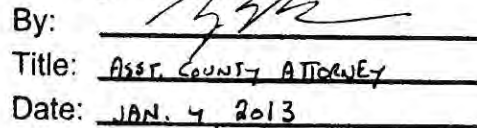 By:
Title: ASST. COUNTY ATTORNEY
Date: JAN. 4 2013